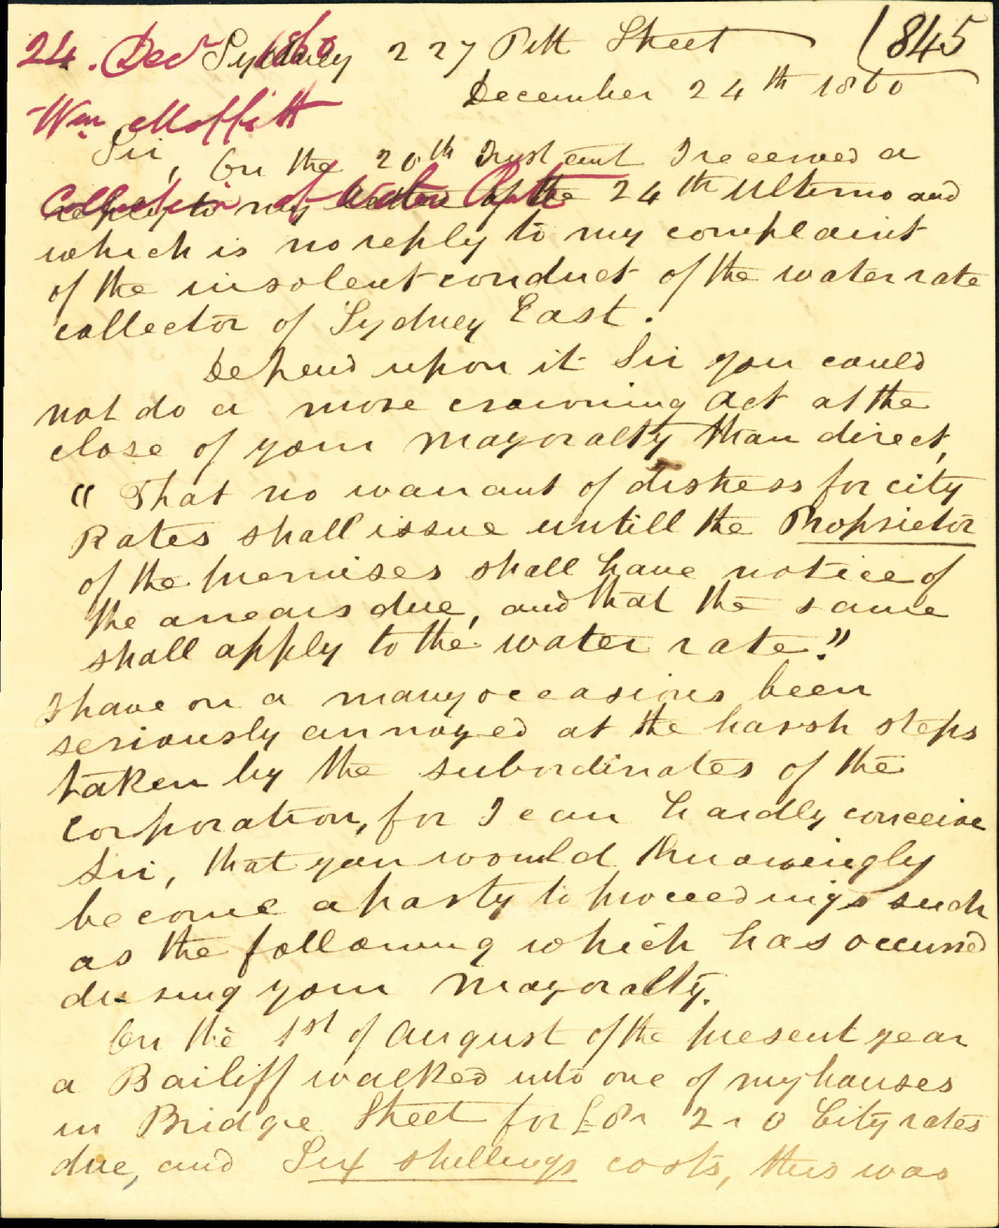 24. Decr 1860
1845
Sydney 227 Pitt Street
December 24th 1860
Wm Moffitt
Collection of Water Rate
Sir, On the 20th Instant I received a
reply to my letter of the 24th Ultimo and
which is no reply to my complaint
of the insolent conduct of the water rate
collector of Sydney East.
Depend upon it Sir you could
not do a more crowning act at the
close of your mayoralty than direct,
"That no warrant of distress for city
Rates shall issue untill the Proprietor
of the premises shall have notice of
the arrears due, and that the same
shall apply to the water rate."
I have on a many occasions been
seriously annoyed at the harsh steps
taken by the subordinates of the
corporation, for I can hardly conceive
Sir, that you would knowingly
become a party to proceedings such
as the following which has occurred
during your mayoralty.
On the 1st of August of the present year
a Bailiff walked into one of my houses
in Bridge Street for £8 " 2 " 0 City rates
due, and Six shillings costs, this was